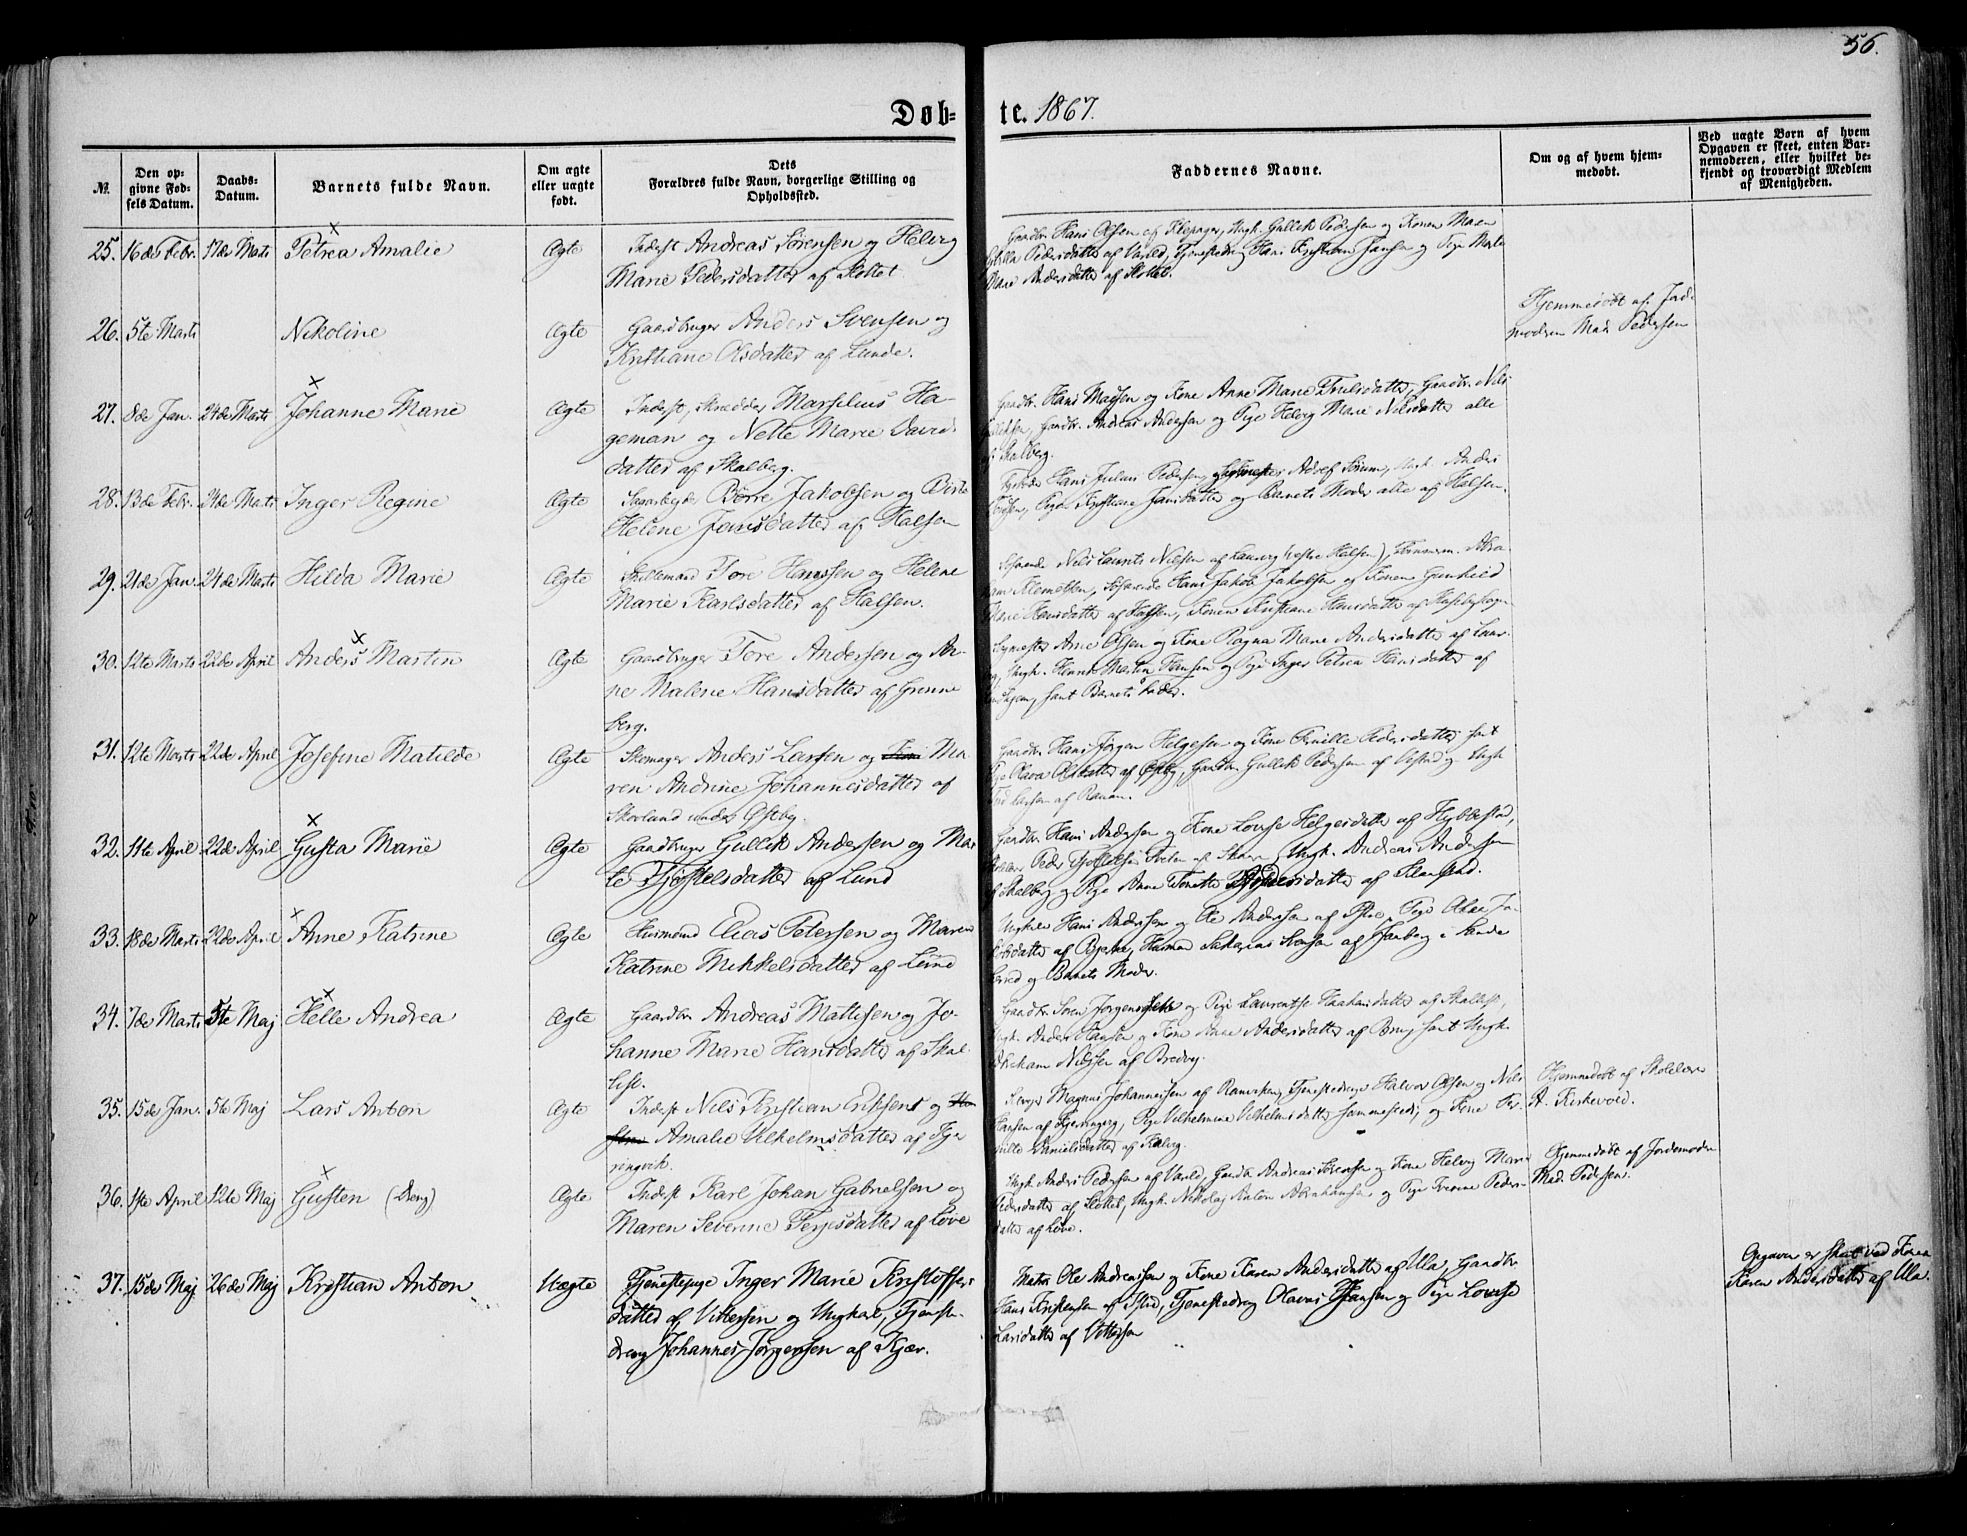 56.
Døb= te. 1867.
№.
Den op-
givne Fød-
sels Datum.
Daabs-
Datum.
Barnets fulde Navn.
Om ægte
eller uægte
født.
Dets
Forældres fulde Navn, borgerlige Stilling og
Opholdssted.
Faddernes Navne.
Om og af hvem hjem-
medøbt.
Ved uægte Børn af hvem
Opgaven er skeet, enten Bar-
nemoderen, eller hvilket be-
kjendt og troværdigt Medlem
af Menigheden.
25. 16de Febr. 17de Marts Petrea Amalie Ægte Inderst Andreas Sørensen og Helvig
Marie Pedersdatter af Slottet.
Gaardbr. Hans Olsen af Klepager, Ungk. Gullik Pedersen og Konen Maren
Pedersdatter af Varild, Tjenestedreng Hans Kristian Hansen og Pige Marte
Marie Andersdatter af Slottet.
26. 5te Marts Nikoline Ægte Gaardbruger Anders Svensen og
Kristiane Olsdatter af Lunde.
Hjemmedøbt af Jorde-
modren Mad. Pedersen
27. 8de Jan. 24de Marts Johanne Marie Ægte Inderst, Skrædder Marselius Ha-
geman og Nette Marie David-
datter af Skalberg.
Gaardbr. Hans Madsen og Kone Anne Marie Trulsdatter, Gaardbr. Nils
Gulliksen, Gaardbr. Andreas Andersen og Pige Helvig Marie Nilsdatter alle
af Skalberg.
28. 13de Febr. 24de Marts Inger Regine Ægte Sagarbeider Børre Jakobsen og Birte
Helene Jansdatter af Halsen
Hans Julius Pedersen, Adolf Sørum, Ungk. Anders
Pigen Kristiane Jansdatter og Barnets Moder alle af Halsen.
29. 21de Jan. 24de Marts Hilda Marie Ægte Skillemand Tore Hanssen og Helene
Marie Karlsdatter af Halsen.
Søfarende Nils Laurits Nilsen af Laurvig (vestre Halsen), Abra-
ham Klemetsen, Søfarende Hans Jakob Jakobsen og Konen Gunhild
Marie Hansdatter af Halsen, Konen Kristiane Hansdatter af
30. 12te Marts 22de April Anders Martin Ægte Gaardbruger Tore Andersen og An-
ne Malene Hansdatter af Grønne
berg.
Arne Olsen og Kone Ragna Marie Andersdatter af Laur-
vig, Ungk. Henrik Martin Hansen og Pige Inger Petrea Hansdatter af
samt Barnets Fader.
31. 12te Marts 22de April Josefine Matilde Ægte Skomager Anders Larsen og Ma-
ren Andrine Johannesdatter af
Skorland under Østby.
Gaardbr. Hans Jørgen Helgesen og Kone Pernille Pedersdatter samt
Pige Olava Olsdatter af Østby, Gaardbr. Gullik Pedersen af og Ungk
Larsen af Ranum.
32. 11te April 22de April Gusta Marie Ægte Gaardbruger Gullik Andersen og Mar-
te Tjøstelsdatter af Lund
Gaardbr. Hans Andersen og Kone Lovise Helgesdatter af Hybbestad,
Peder af Skaun, Ungk. Andreas Andersen
af Skalberg og Pige Anne Tonette af
33. 18de Marts 22de April Anne Katrine Ægte Husmand Elias Petersen og Maren
Katrine Mikkelsdatter af Lund
Ungkar Hans Andersen og Ole Andersen af Pige Ja-
kobsdatter af Husmand Sakarias af i Sande-
herred og Barnets Moder.
34. 7de Marts 5te Maj Helle Andrea Ægte Gaardbr. Andreas Mattisen og Jo-
hanne Marie Hansdatter af Skal-
list.
Gaardbr. Søren Jørgensen og Pige Laurentse Haakansdatter af Skallist,
Ungk. Anders Hansen og Kone Anne Andersdatter af samt Ungk.
Abraham Nilsen af Bredvej.
35. 15de Jan. 5te Maj Lars Anton Ægte Inderst Nils Kristian Eriksen og
Amalie Vilhelmsdatter af Fje-
ringvik.
Magnus Johannessen af Ranviken, Tjenestedreng Halvor Olsen og Nils
Hansen af Pige Vilhelmine Vilhelmsdatter sammesteds, og Kone Per-
nille Danielsdatter af
Hjemmedøbt af Skolelærer
A. Kirkevold.
36. 1ste April 12te Maj Gusten (Dreng) Ægte Inderst Karl Johan Gabrielsen og
Maren Severine Terjesdatter af Løve
Ungk. Anders Pedersen af Varild, Gaardbr. Andreas Sørensen og Kone Helvig Marie
Pedersdatter af Slottet, Ungk. Nikolaj Anton Abrahamsen og Pige Peders-
datter af Løve.
Hjemmedøbt af Jordemoder
Mad. Pedersen.
37. 15de Maj 26de Maj Kristian Anton Uægte Tjenestepige Inger Marie Kristoffers-
datter af Vittersen og Ungkarl, Tjeneste-
dreng Johannes Jørgensen af Kjær.
Matros Ole Andreassen og Kone Karen Andersdatter af Ula, Gaardbr.
Hans Kristensen af Tjenestedreng Olavus Hansen og Pige Lovise
Larsdatter af Vittersen
Opgaven er skeet ved Konen
Karen Andersdatter af Ula.